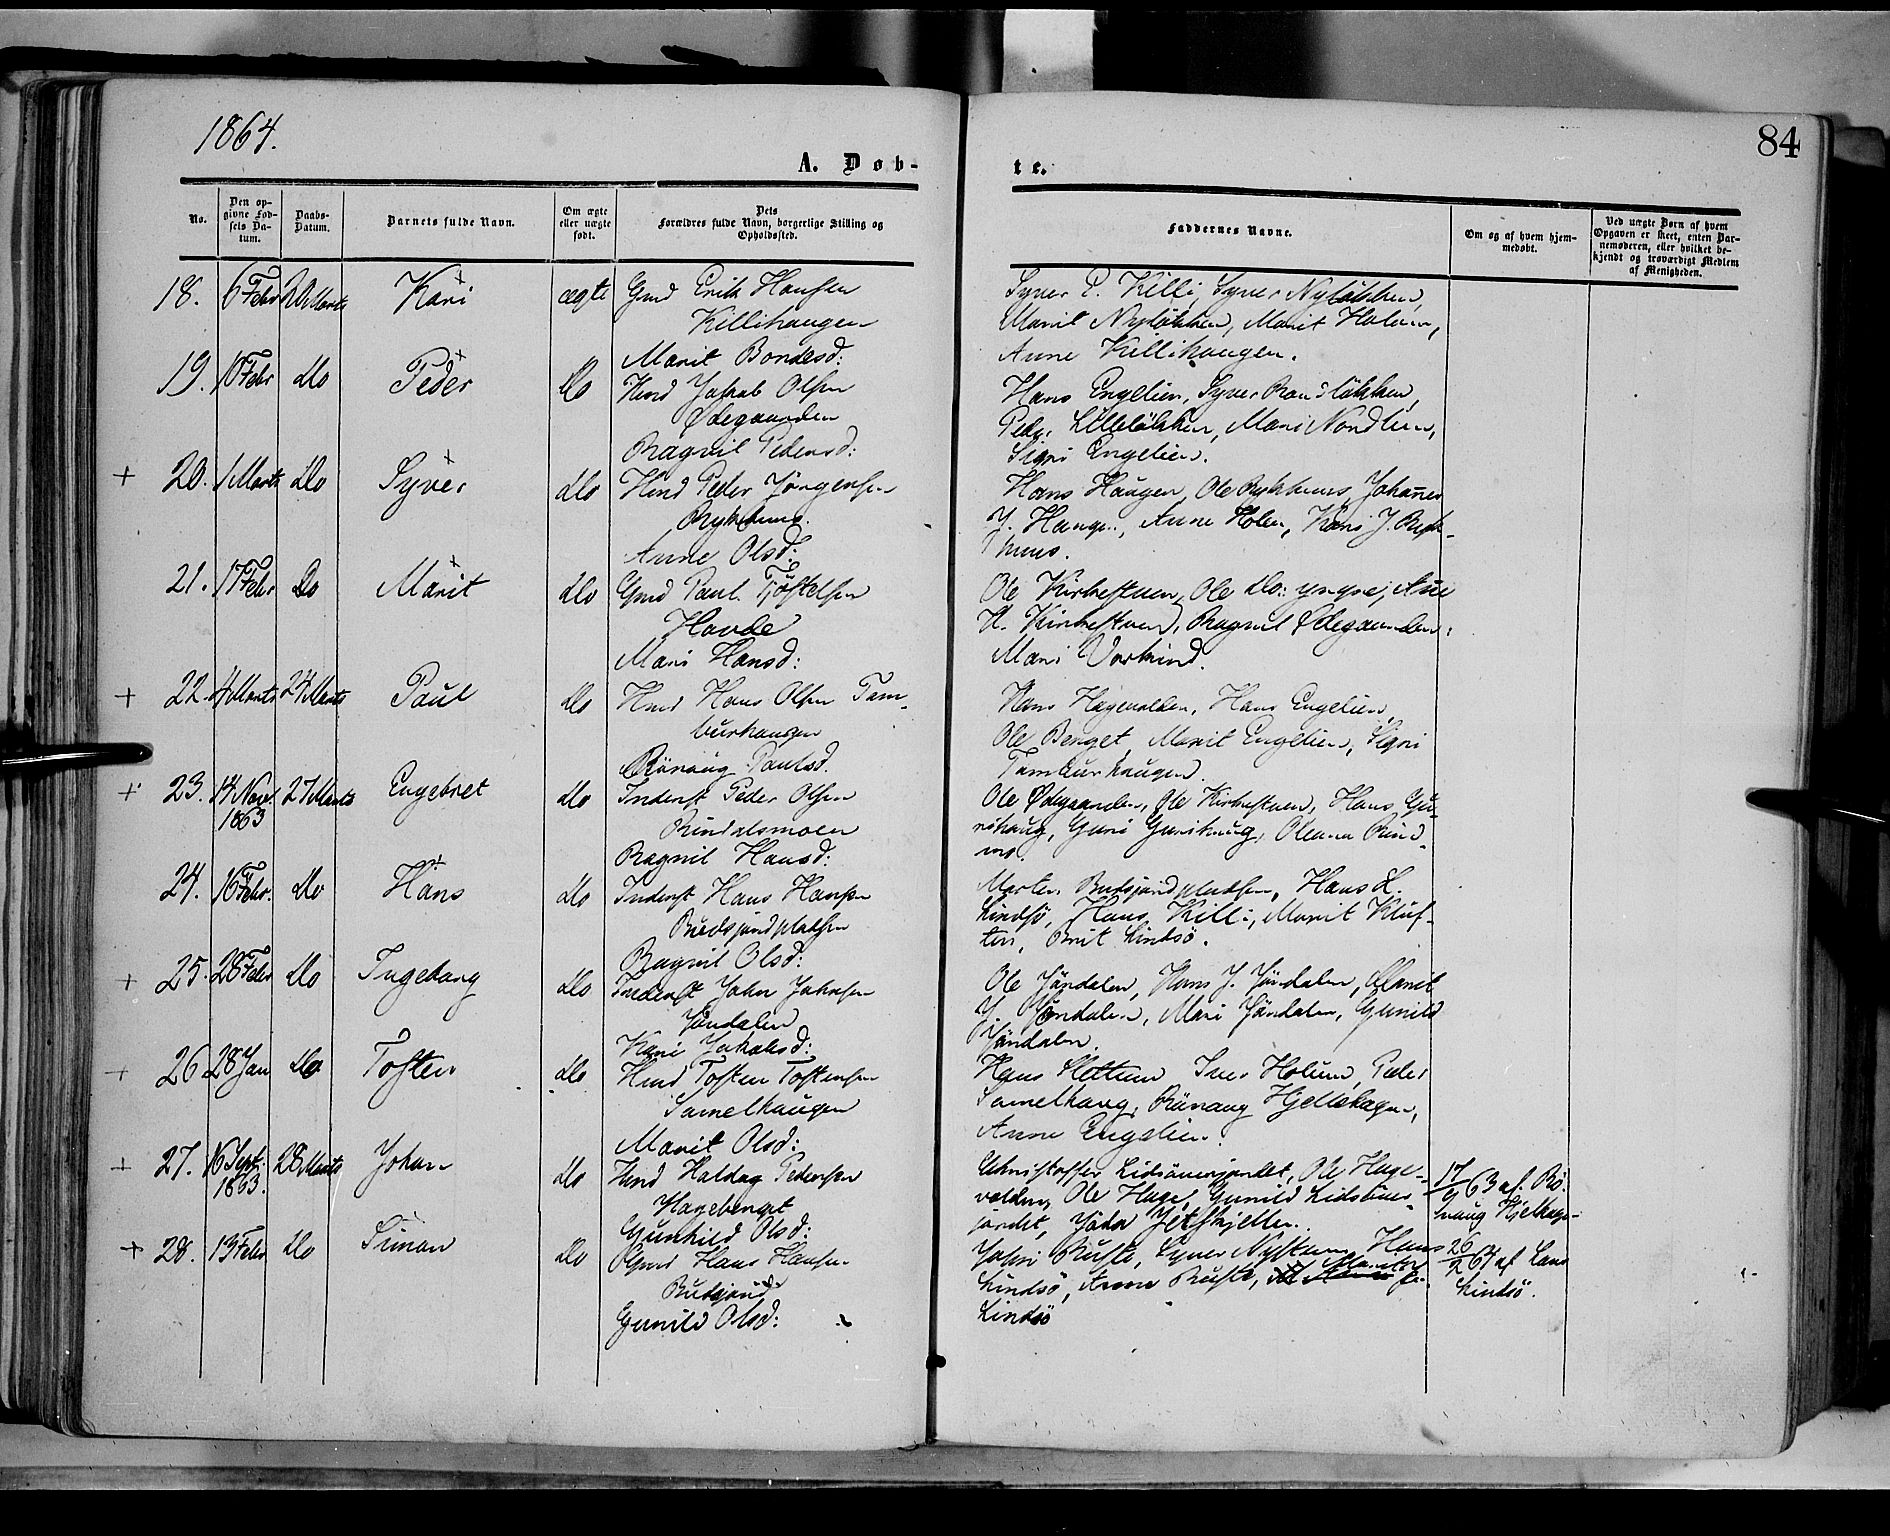 1864.
84
A. Døb-
te.
No.
Den op-
givne Fød-
sels Da-
tum.
Daabs-
Datum.
Barnets fulde Navn.
Om ægte
eller uægte
født.
Dets
Forældres fulde Navn, borgerlige Stilling og
Opholdssted.
Faddernes Navne.
Om og af hvem hjem-
medøbt.
Ved uægte Børn af hvem
Opgaven er skeet, enten Bar-
nemoderen, eller hvilket be-
kjendt og troværdigt Medlem
af Menigheden.
18. 6 Febr 20 Marts Kari ægte Gmd Erik Hansen
Killihaugen
Marit Bondesd:
Syver P. Killi, Syver Nyløkken,
Marit Nyløkken, Marit Holum,
Anne Killihaugen.
19. 10 Febr do Peder do Hmd Jakob Olsen
Ødegaarden
Ragnil Pedersd:
Hans Engelien, Syver Randløkken,
Peder Lilleløkken, Mari Nordlien,
Signi Engelien.
+ 20. 1 Marts do Syver do Hmd Peder Jørgensen
Rykhuus.
Anne Olsd:
Hans Haugen, Ole Rykhuus, Johannes
J. Haugen, Anne Holen, Kari J. Ryk-
huus.
21. 17 Febr do Marit do Gmd Paul Tjøstelsen
Havde
Mari Hansd:
Ole Kirkestuen, Ole do: yngre, Anne
H. Kirkestuen, Ragnil Ødegaarden,
Mari Vorkind.
+ 22. 4 Marts 24 Marts Paul do Hmd Hans Olsen Tam-
burhaugen
Rønaug Paulsd.
Hans Hagevolden, Hans Engelien,
Ole Benget, Marit Engelien, Signi
Tamburhaugen.
+ 23. 14 Novr 27 Marts Engebret do Inderst Peder Olsen
1863
Rindalsmoen
Ragnil Hansd:
Ole Ødegaarden, Ole Kirkestuen, Hans Gu-
rihaug, Guri Gurihaug, Oleana Rind-
24. 16 Febr. do Hans do Inderst Hans Hansen
Budsjordpladsen
Ragnil Olsd:
Morten Budsjordpladsen, Hans L.
Lindsø, Hans Killi, Marit Kluf-
ten, Brit Lindsø.
+ 25. 28 Febr do Ingeborg do Inderst John Johnsen
Jøndalen
Kari Jakobsd:
Ole Jøndalen, Hans J. Jøndalen, Marit
J. Jøndalen, Mari Jøndalen, Gunild
Jøndalen.
+ 26 28 Jan do Tosten do Hmd Tosten Tostensen
Samelhaugen
Marit Olsd:
Hans Slettum Iver Holum, Peder
Samelhaug, Rønaug Hjellehagen,
Anne Engelien.
+ 27. 16 Sept. 28 Marts Johan do Hmd Haldag Pedersen
1863.
Hagebenget
Gunhild Olsd:
Christoffer Lidsøuerjordet, Ole Hage-
volden, Ole Hage, Gunild Lidsøuer-
jordet,
17/9 63 af Rø-
naug Hjelhage-
+ 28. 13 Febr do Simon do Gmd Hans Hansen
Budsjord
Gunild Olsd:
John Ruste, Syver Nystuen, Hans
Lindsø, Anne Ruste, Marit
Lindsø
26/2 63 af Lars
Lindsø.